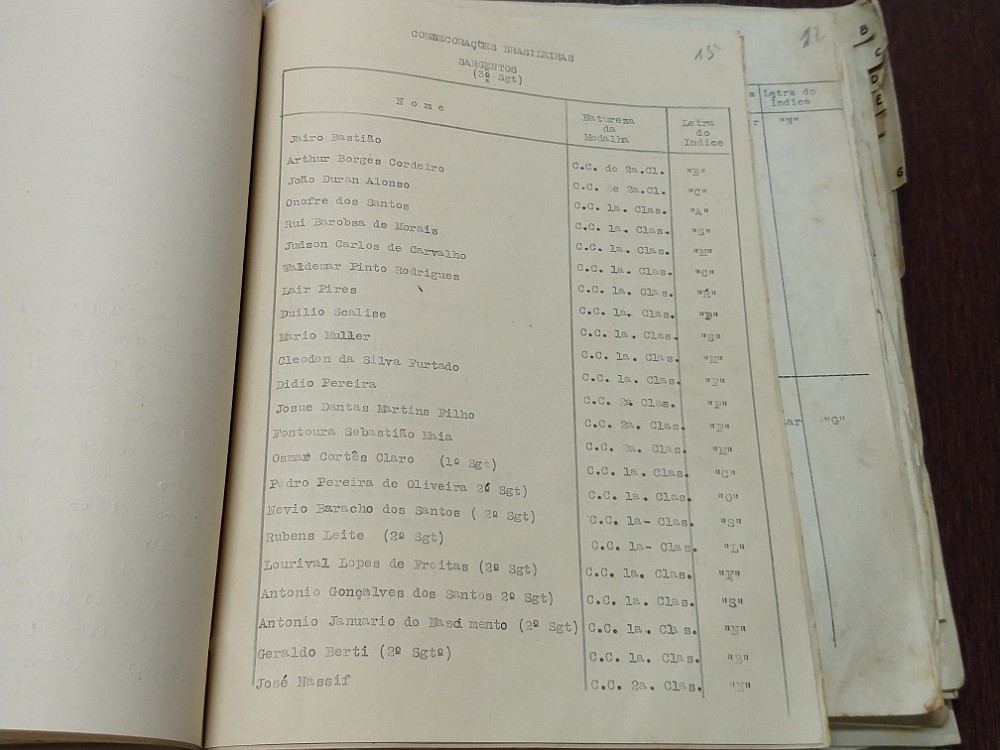 CONDECORAÇÕES BRASILEIRAS
15
SARGENTOS
(3º Sgt)
Nome Natureza da Medalha Letra do Índice
Jairo Bastião C.C. de 2a.Cl. "B"
Arthur Borges Cordeiro C.C. de 2a.Cl. "C"
João Duran Alonso C.C. 1a. Clas. "A"
Onofre dos Santos C.C. 1a. Clas. "S"
Rui Barobsa de Morais C.C. 1a. Clas. "M"
Judson Carlos de Carvalho C.C. 1a. Clas. "C"
Waldemar Pinto Rodrigues C.C. 1a. Clas. "R"
Lair Pires C.C. 1a. Clas. "P"
Duilio Scalise C.C. 1a. Clas. "S"
Mario Muller C.C. 1a. Clas. "M"
Cleodon da Silva Furtado C.C. 1a. Clas. "F"
Didio Pereira C.C. 2a Clas. "P"
Josue Dantas Martins Filho C.C. 2a. Clas. "F"
Fontoura Sebastião Maia C.C. 2a. Clas. "M"
Osmar Cortês Claro (1º Sgt) C.C. 1a. Clas. "C"
Pedro Pereira de Oliveira 2º Sgt) C.C. 1a. Clas. "O"
Nevio Baracho dos Santos ( 2º Sgt) C.C. 1a- Clas. "S"
Rubens Leite (2º Sgt) C.C. 1a- Clas. "L"
Lourival Lopes de Freitas (2º Sgt) C.C. 1a. Clas. "F"
Antonio Gonçalves dos Santos 2º Sgt) C.C. 1a. Clas. "S"
Antonio Januario do Nascimento (2º Sgt) C.C. 1a. Clas. "N"
Geraldo Berti (2º Sgtº) C.C. 1a. Clas. "B"
José Nassif C.C. 2a. Clas. "N"
12
Letra do Índice
"N"
"G"
B
C
D
E
G